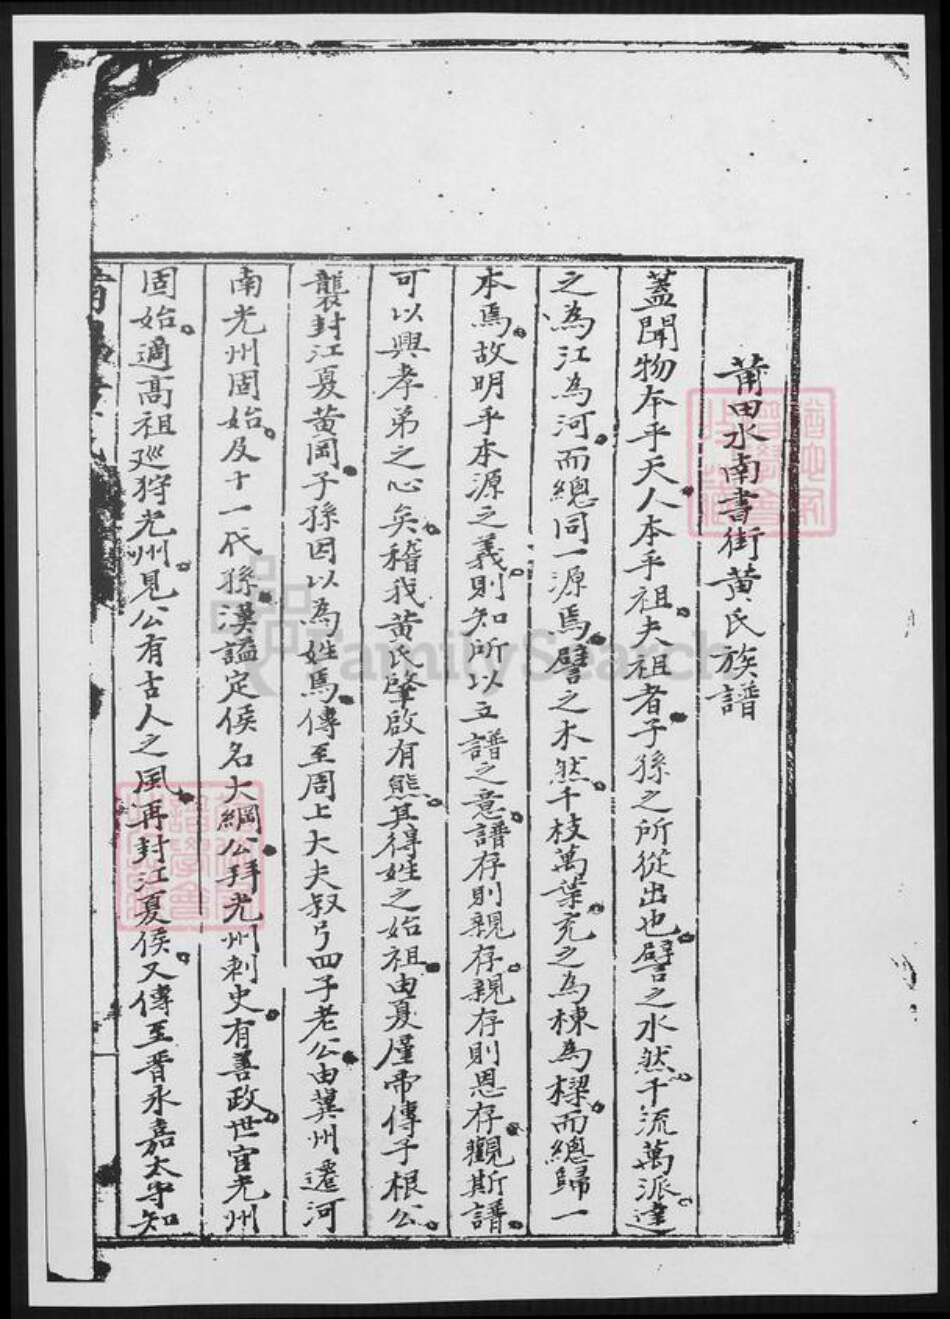 莆田水南書街黄氏族譜
蓋聞物本乎天人本乎祖。夫祖者子孫之所從出也。譬之水然。千流萬派。達
之為江為河。而總同一源焉。譬之木然。千枝萬葉。充之為棟為樑。而總歸一
本焉。故明乎本源之義。則知所以立譜之意。譜存則親存。親存則恩存。觀斯譜。
可以興孝弟之心矣。稽我黄氏肇啟有熊。其得姓之始祖。由夏廑帝傳子根公。
襲封江夏黄岡。子孫因以為姓焉。傳至周上大夫叔弓四子老公。由冀州遷河
南光州固始。及十一代孫。漢謚定侯名大綱公。拜光州刺史。有善政。世官光州
固始。適高祖廵狩光州。見公有古人之風。再封江夏侯。又傳至晋永嘉太守知
FamilySearch